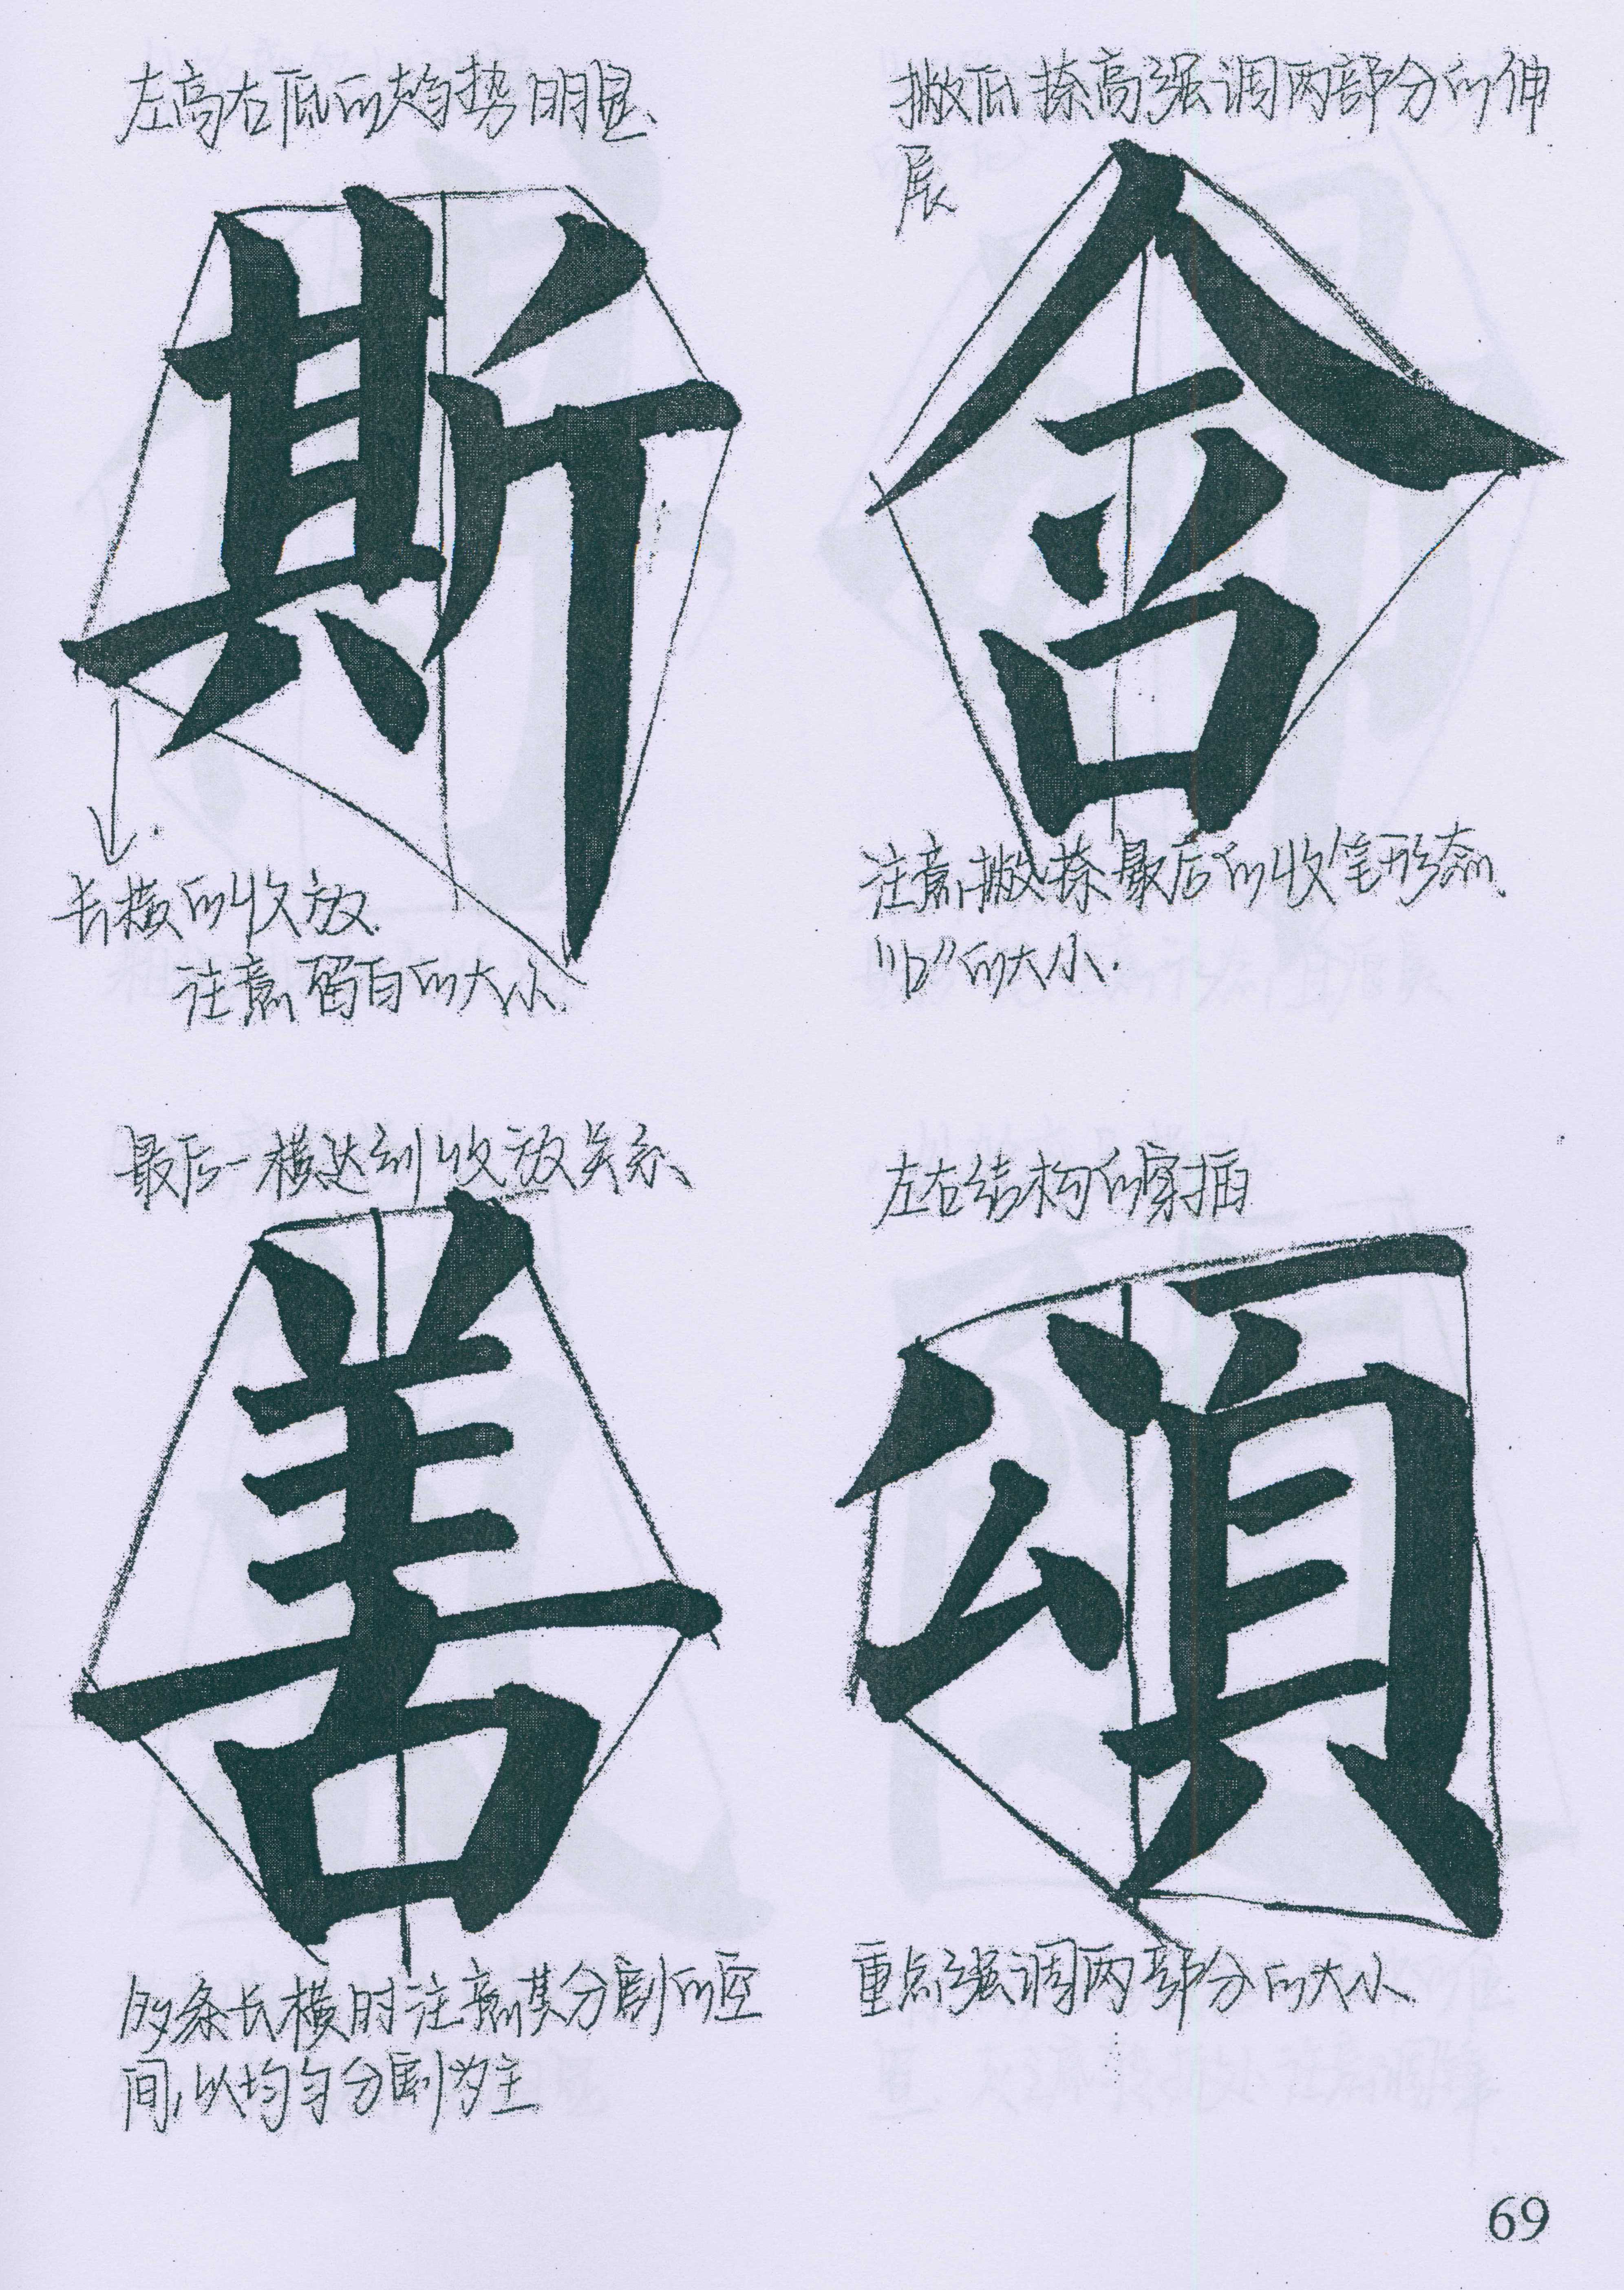 左高右低的趋势明显、
斯
长横的收放.
注意留白的大小.
撇低捺高强调两部分的伸
展
舍
注意撇捺最后的收笔形态.
"口"的大小.
最后一横达到收放关系、
善
多条长横时注意其分割的空
间,以均匀分割为主
左右结构的穿插
頌
重点强调两部分的大小.
69